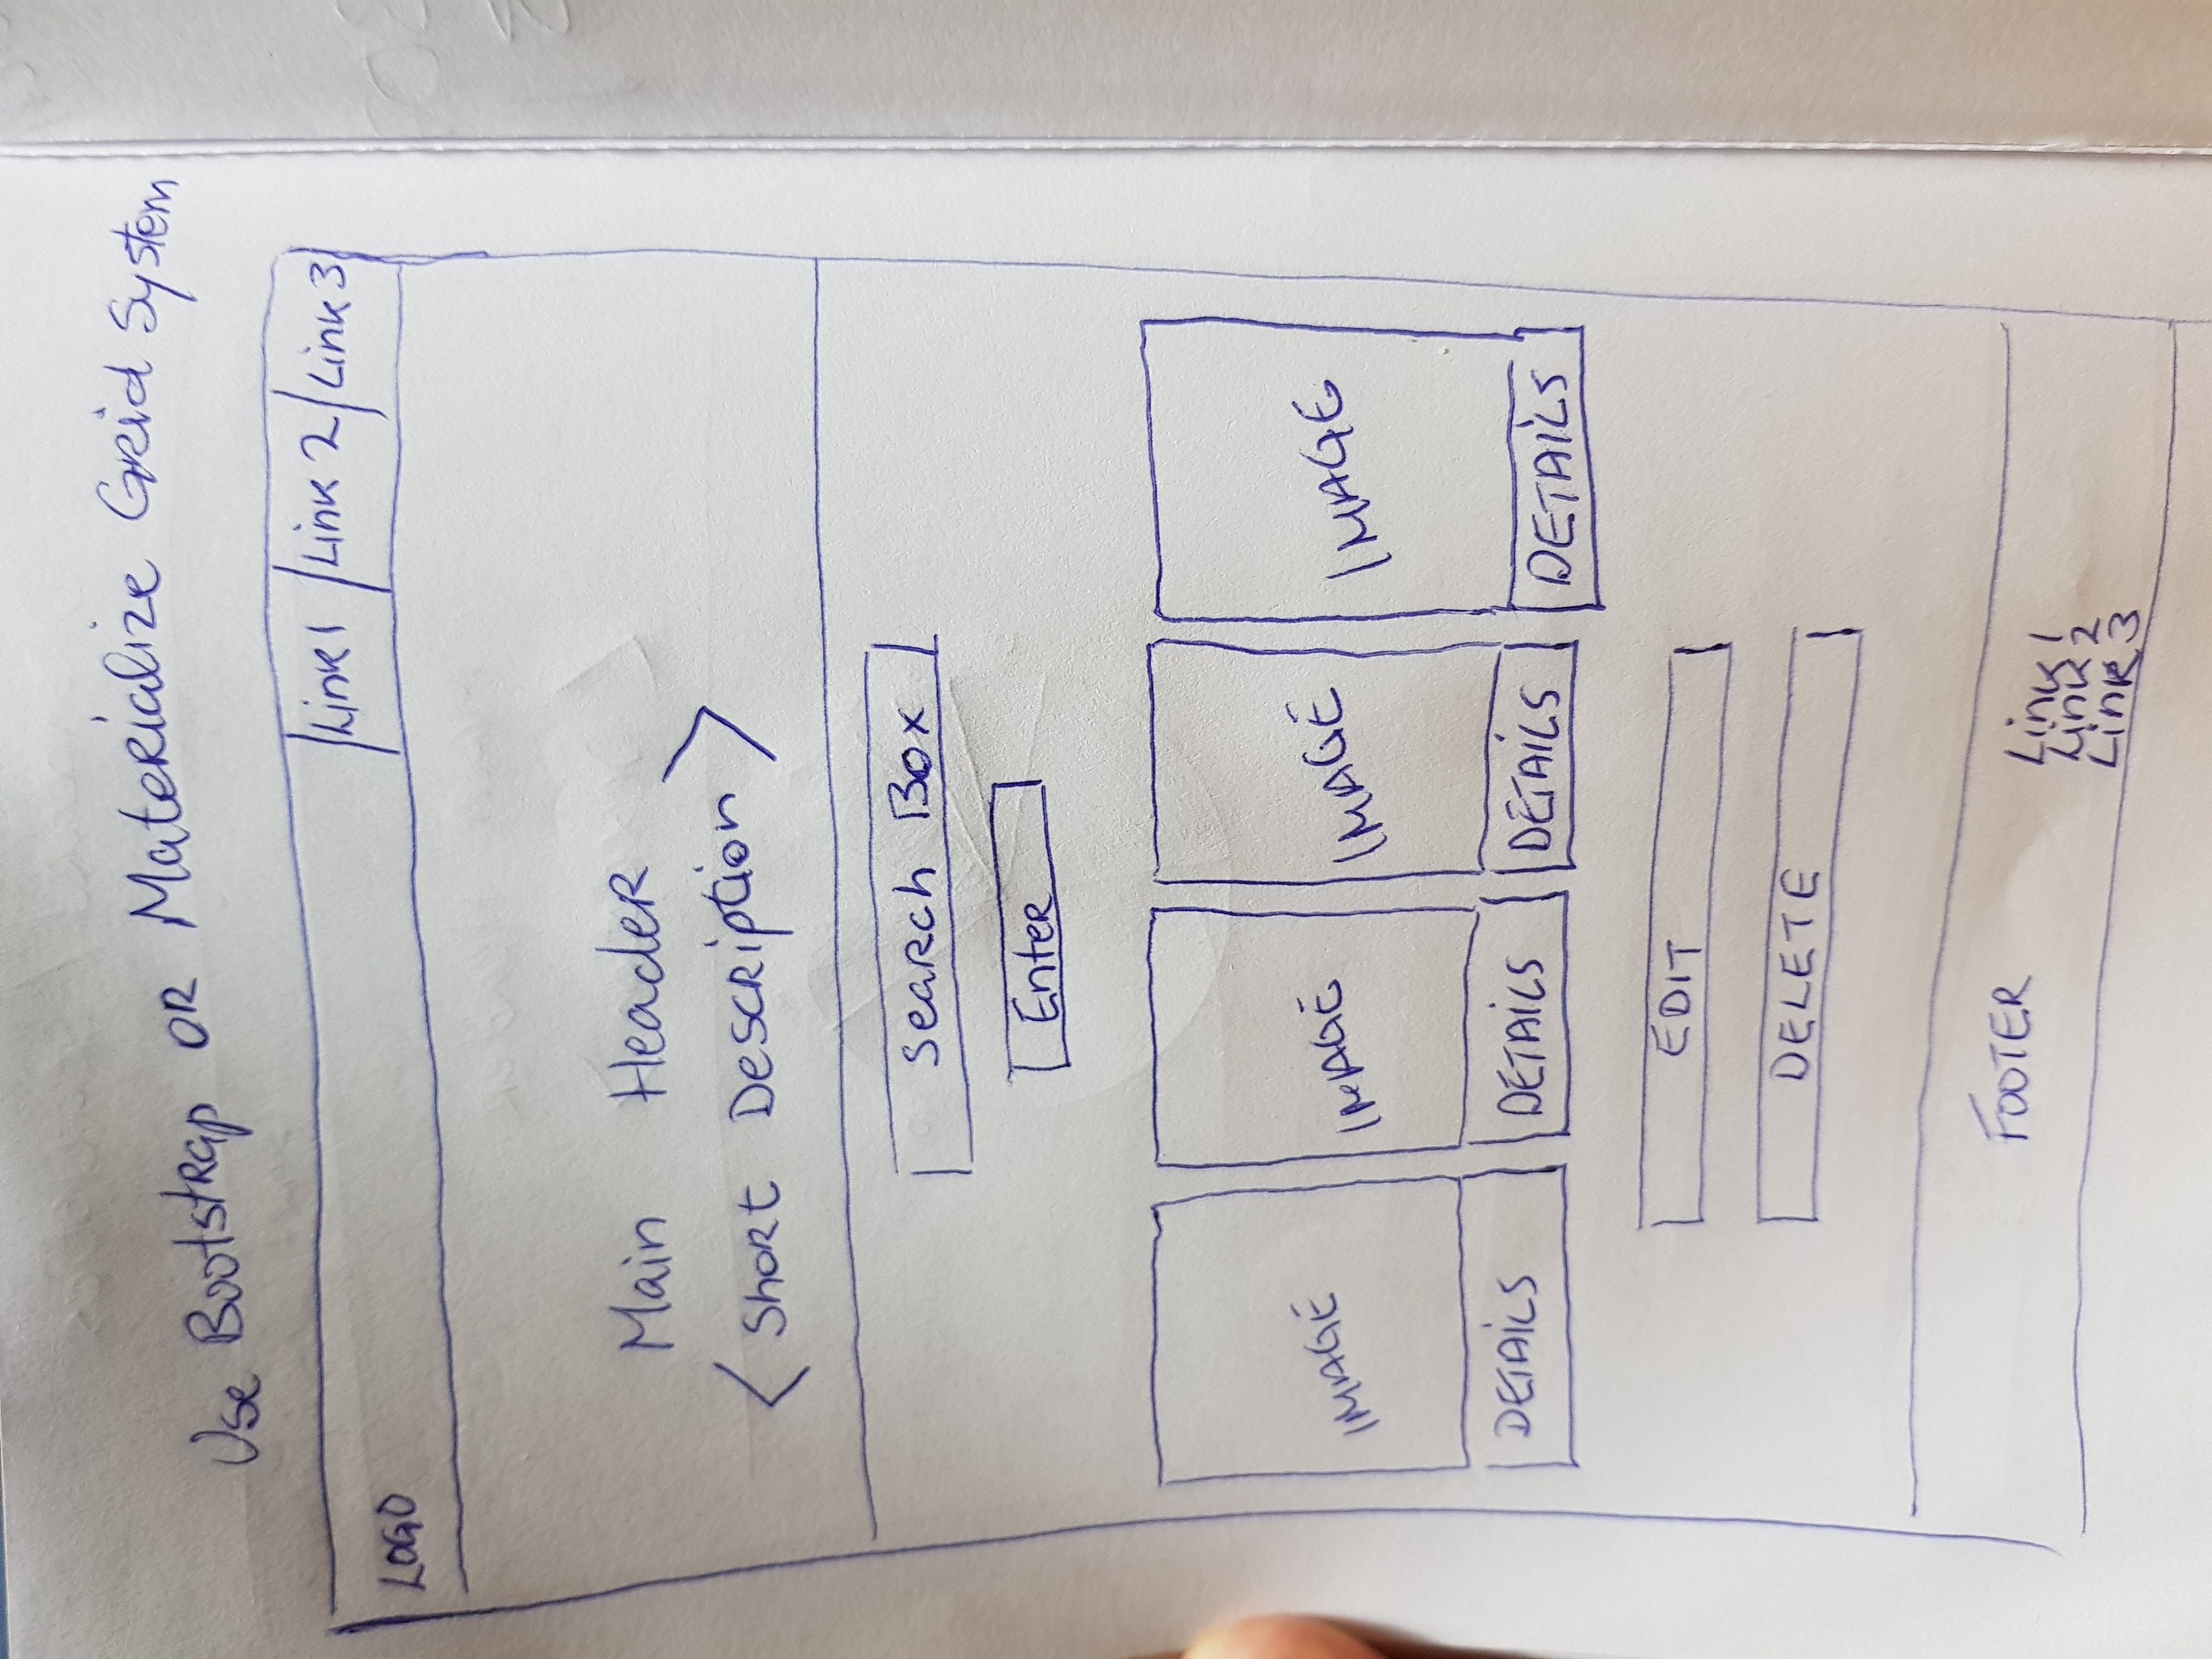 Use Bootstrap OR Materialize Grid System
Link 1 Link 2 Link 3
LOGO
Main Header
< Short Description >
Search Box
Enter
IMAGE IMAGE IMAGE IMAGE
DETAILS DETAILS DETAILS DETAILS
EDIT
DELETE
FOOTER
Link 1
Link 2
Link 3